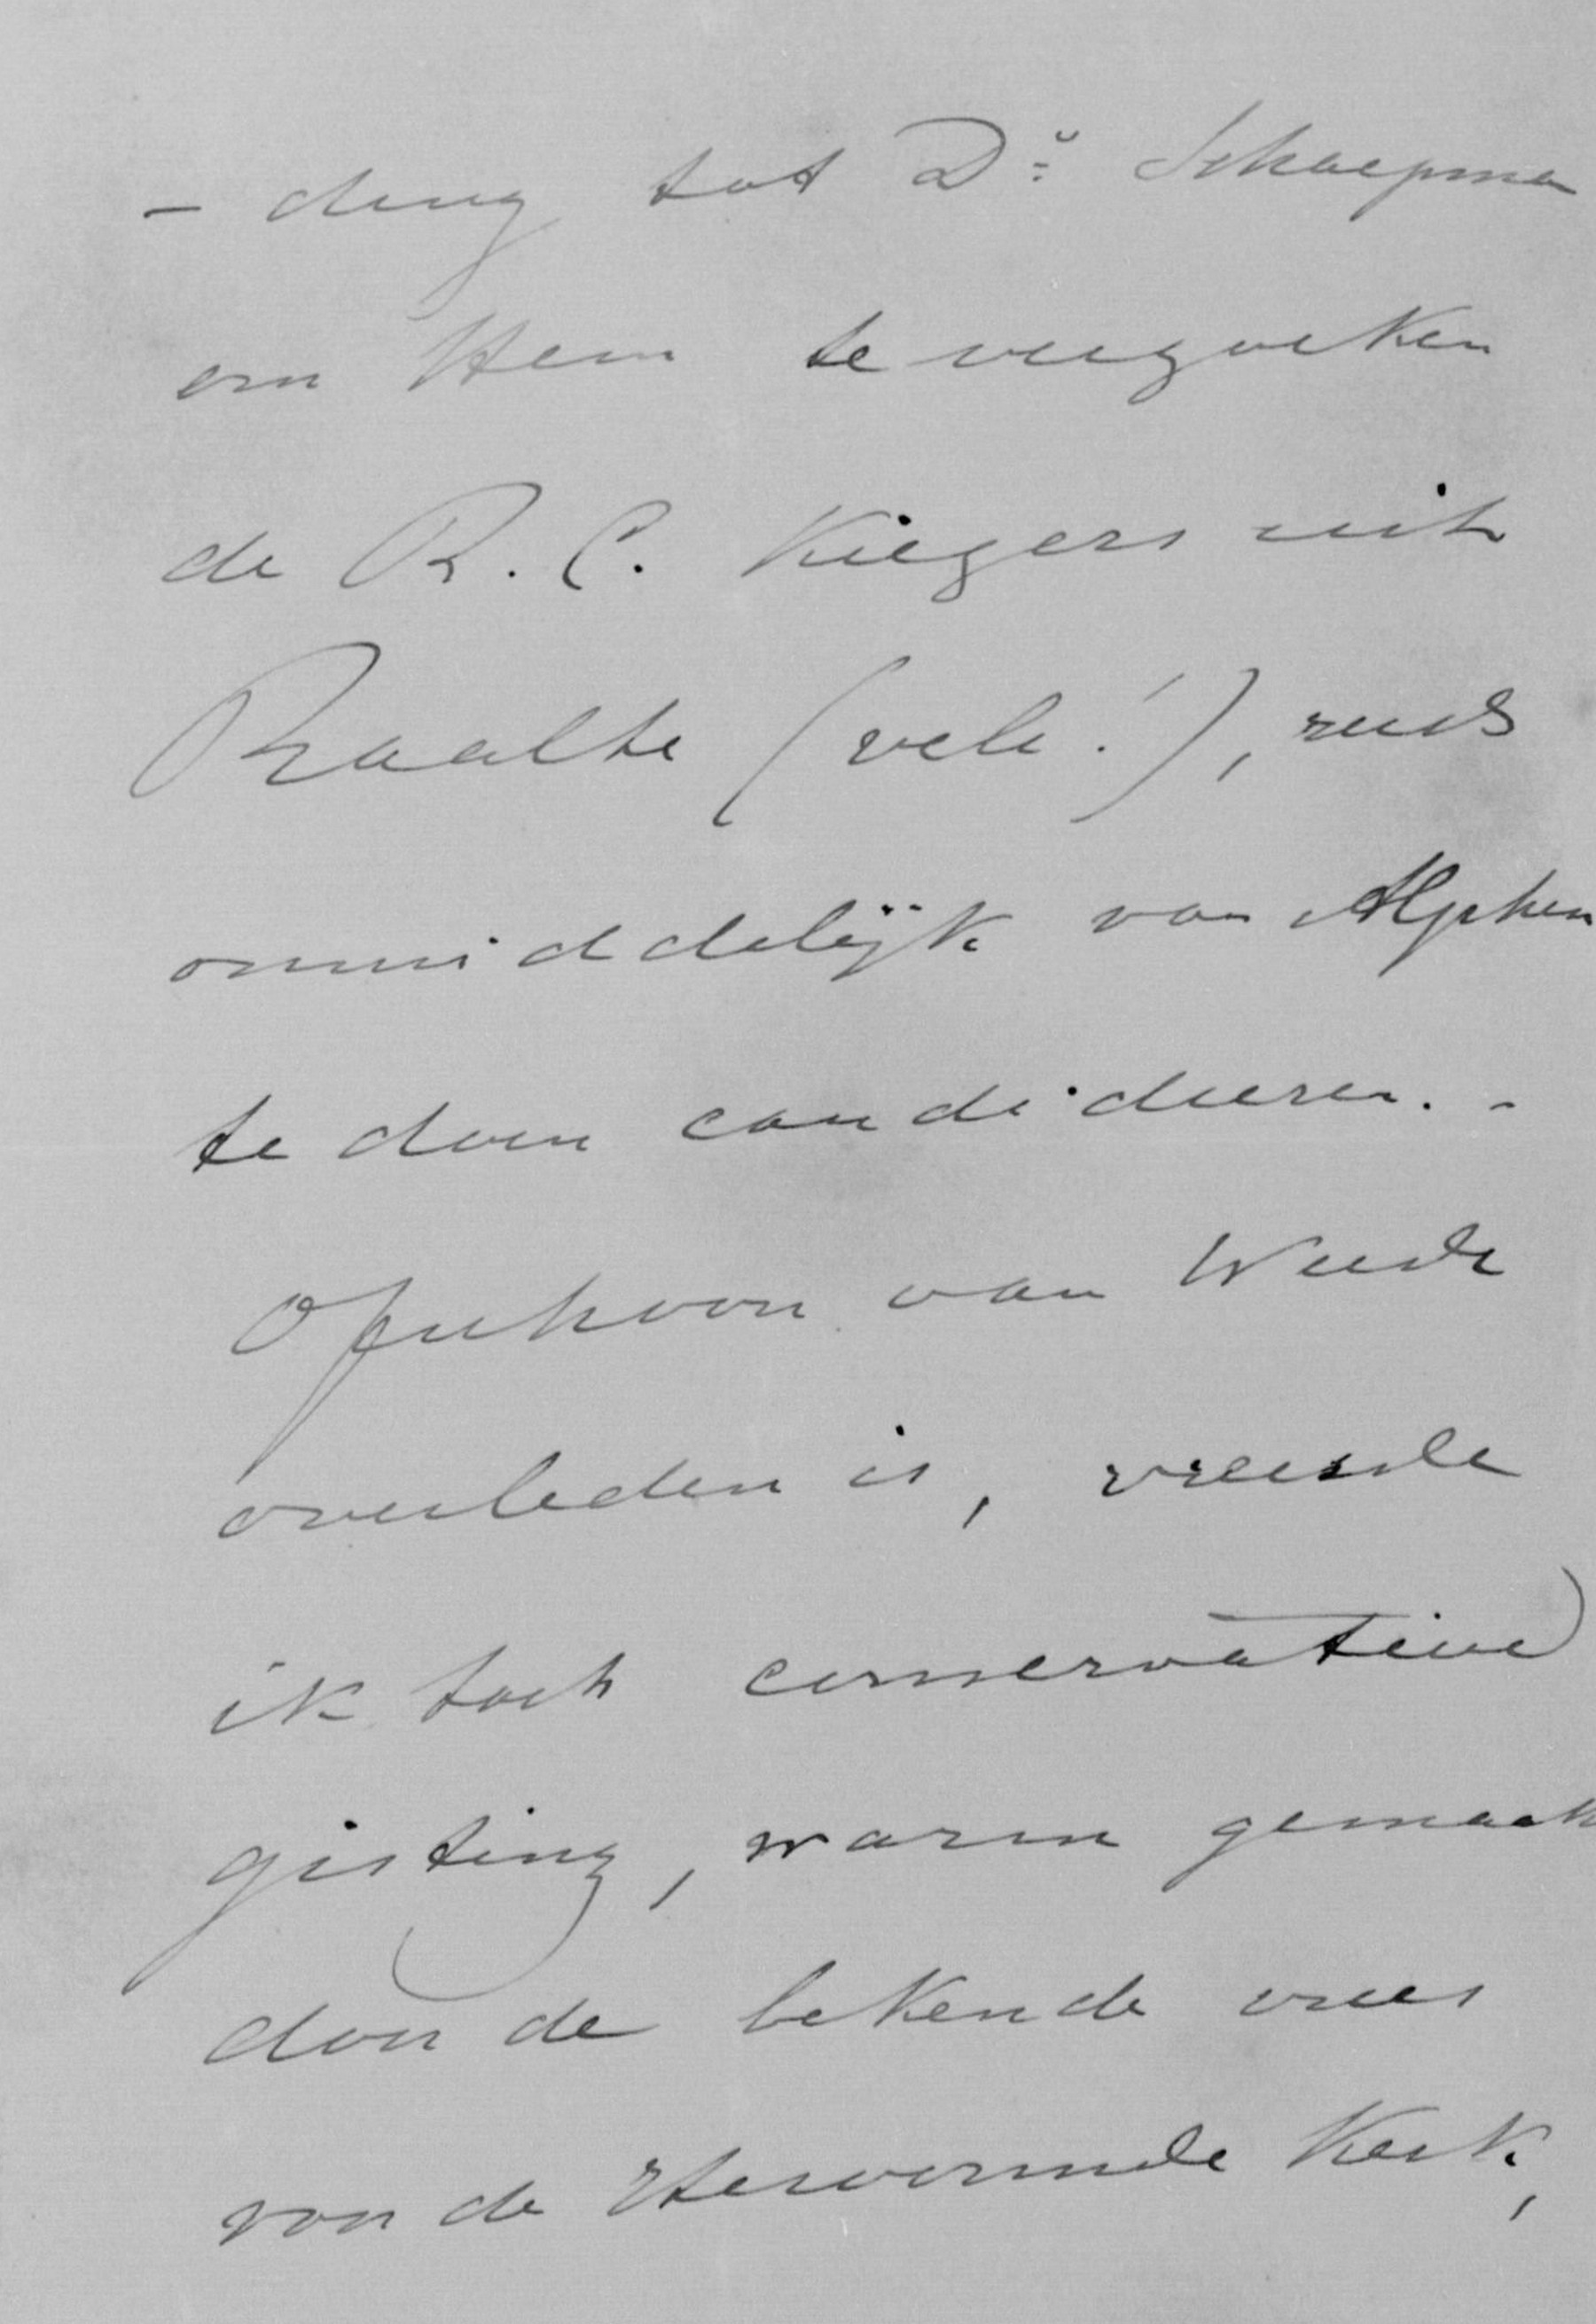 - ding tot Dr. Schaepman
om Hem te verzoeken
de R. C. Kiezers uit
Raalte (vele!), reeds
onmiddelijk van Alphen
te doen candideeren. -
Ofschoon van Weede
overleden is, vreesde
ik toch conservatieve
gisting, warm gemaakt
door de bekende vrees
voor de Hervormde Kerk,